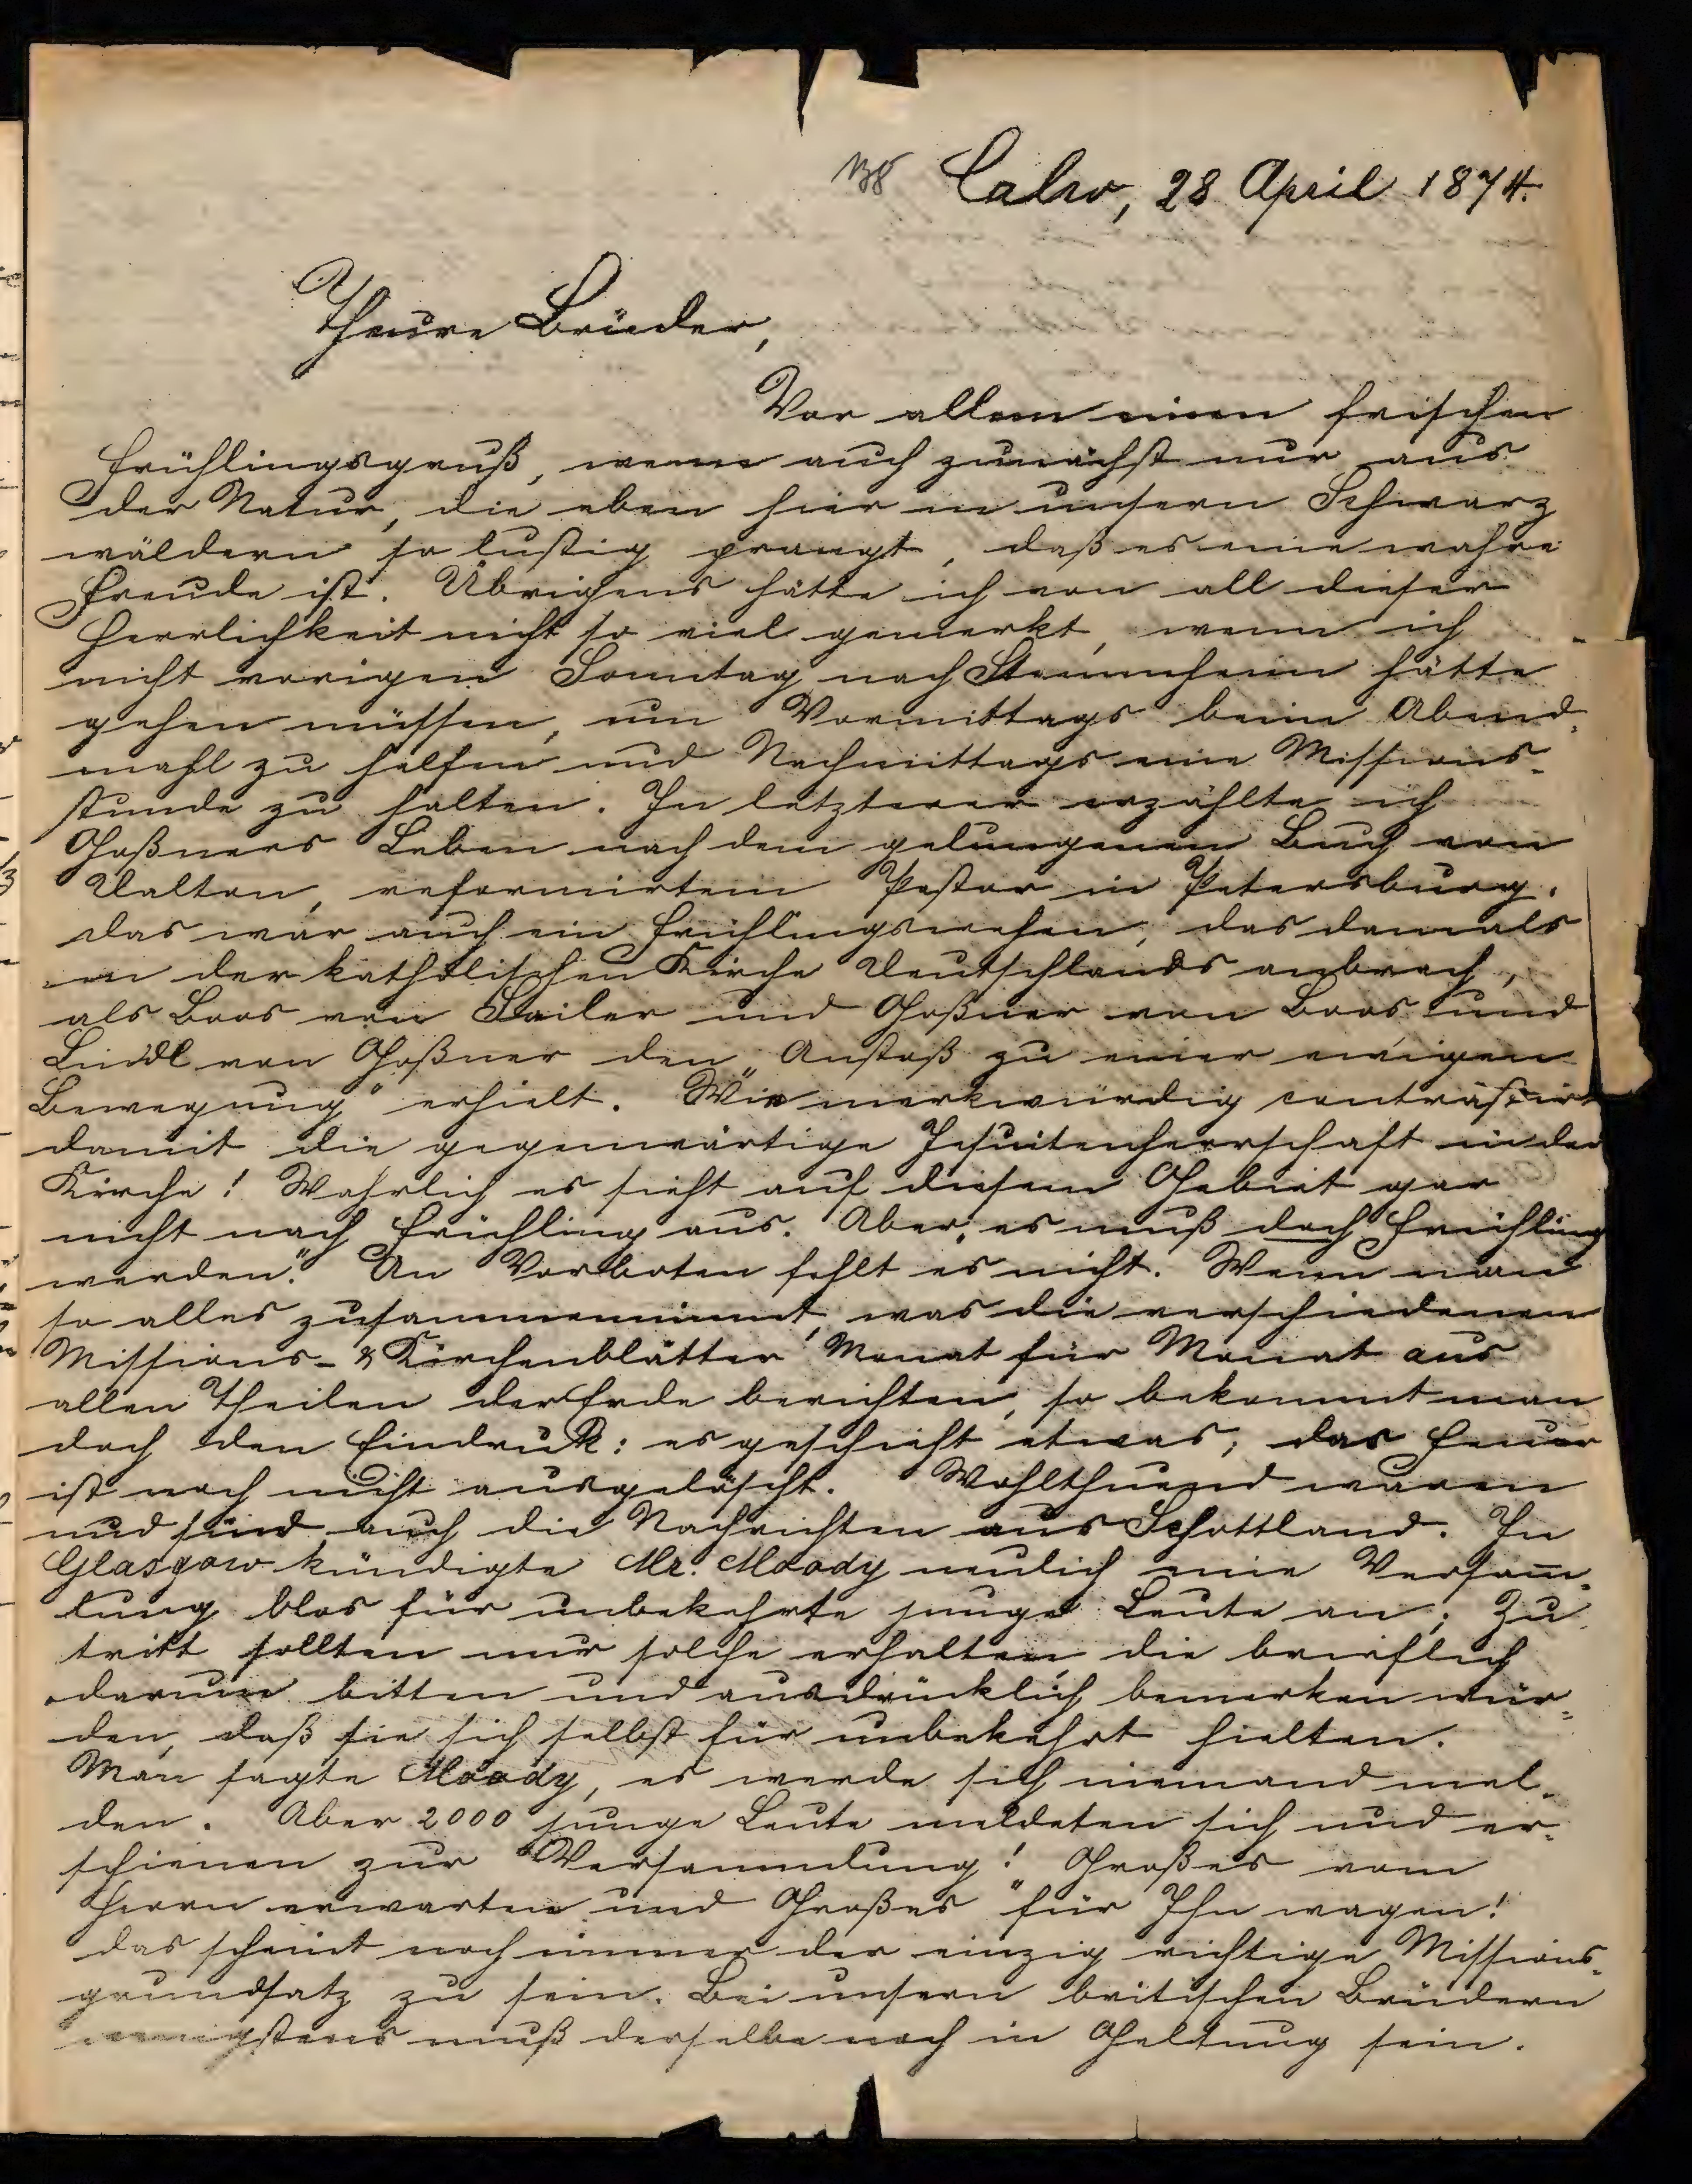 138 Calw, 28 April 1874.
Theure Brüder,
Vor allem einen frischen
Frühlingsgruß, wenn auch zunächst nur aus
der Natur, die eben hier in unsern Schwarz
wäldern so lustig prangt, daß es eine wahre
Freude ist. Übrigens hätte ich von all dieser
Herrlichkeit nicht so viel gemerkt, wenn ich
nicht vorigen Sonntag nach Stammheim hätte
gehen müssen, um Vormittags beim Abend-
mahl zu helfen und Nachmittags eine Missions-
stunde zu halten. In letzterer erzählte ich
Goßners Leben nach dem gelungenen Buch von
Dalton, reformirtem Pastor in Petersburg.
das war auch ein Frühlingswehen, das damals
in der katholischen Kirche Deutschlands anbrach,
als Boos von Sailer und Goßner von Boos und
Lindl von Goßner den Anstoß zu einer „ewigen
Bewegung" erhielt. Wie merkwürdig contrastirt
damit die gegenwärtige Jesuitenherrschaft in der
Kirche! Wahrlich es sieht auf diesem Gebiet gar
nicht nach Frühling aus. Aber „es muß doch Frühling
werden." An Vorboten fehlt es nicht. Wenn man
so alles zusammennimmt, was die verschiedenen
Missions- & Kirchenblätter Monat für Monat aus
allen Theilen der Erde berichten, so bekommt man
doch den Eindruck: es geschieht etwas; das Feuer
ist noch nicht ausgelöscht. Wohlthuend waren
und sind auch die Nachrichten aus Schottland. In
Glasgow kündigte Mr. Moody neulich eine Versam̅-
lung blos für unbekehrte junge Leute an; Zu-
tritt sollten nur solche erhalten, die brieflich
darum bitten und ausdrücklich bemerken wür-
den, daß sie sich selbst für unbekehrt hielten.
Man sagte Moody, es werde sich niemand mel-
den. Aber 2000 junge Leute meldeten sich und er-
schienen zur Versammlung! „Großes vom
Herrn erwarten und Großes für Ihn wagen!"
das scheint noch immer der einzig richtige Missions-
grundsatz zu sein. Bei unsern britischen Brüdern
wenigstens muß derselbe noch in Geltung sein.